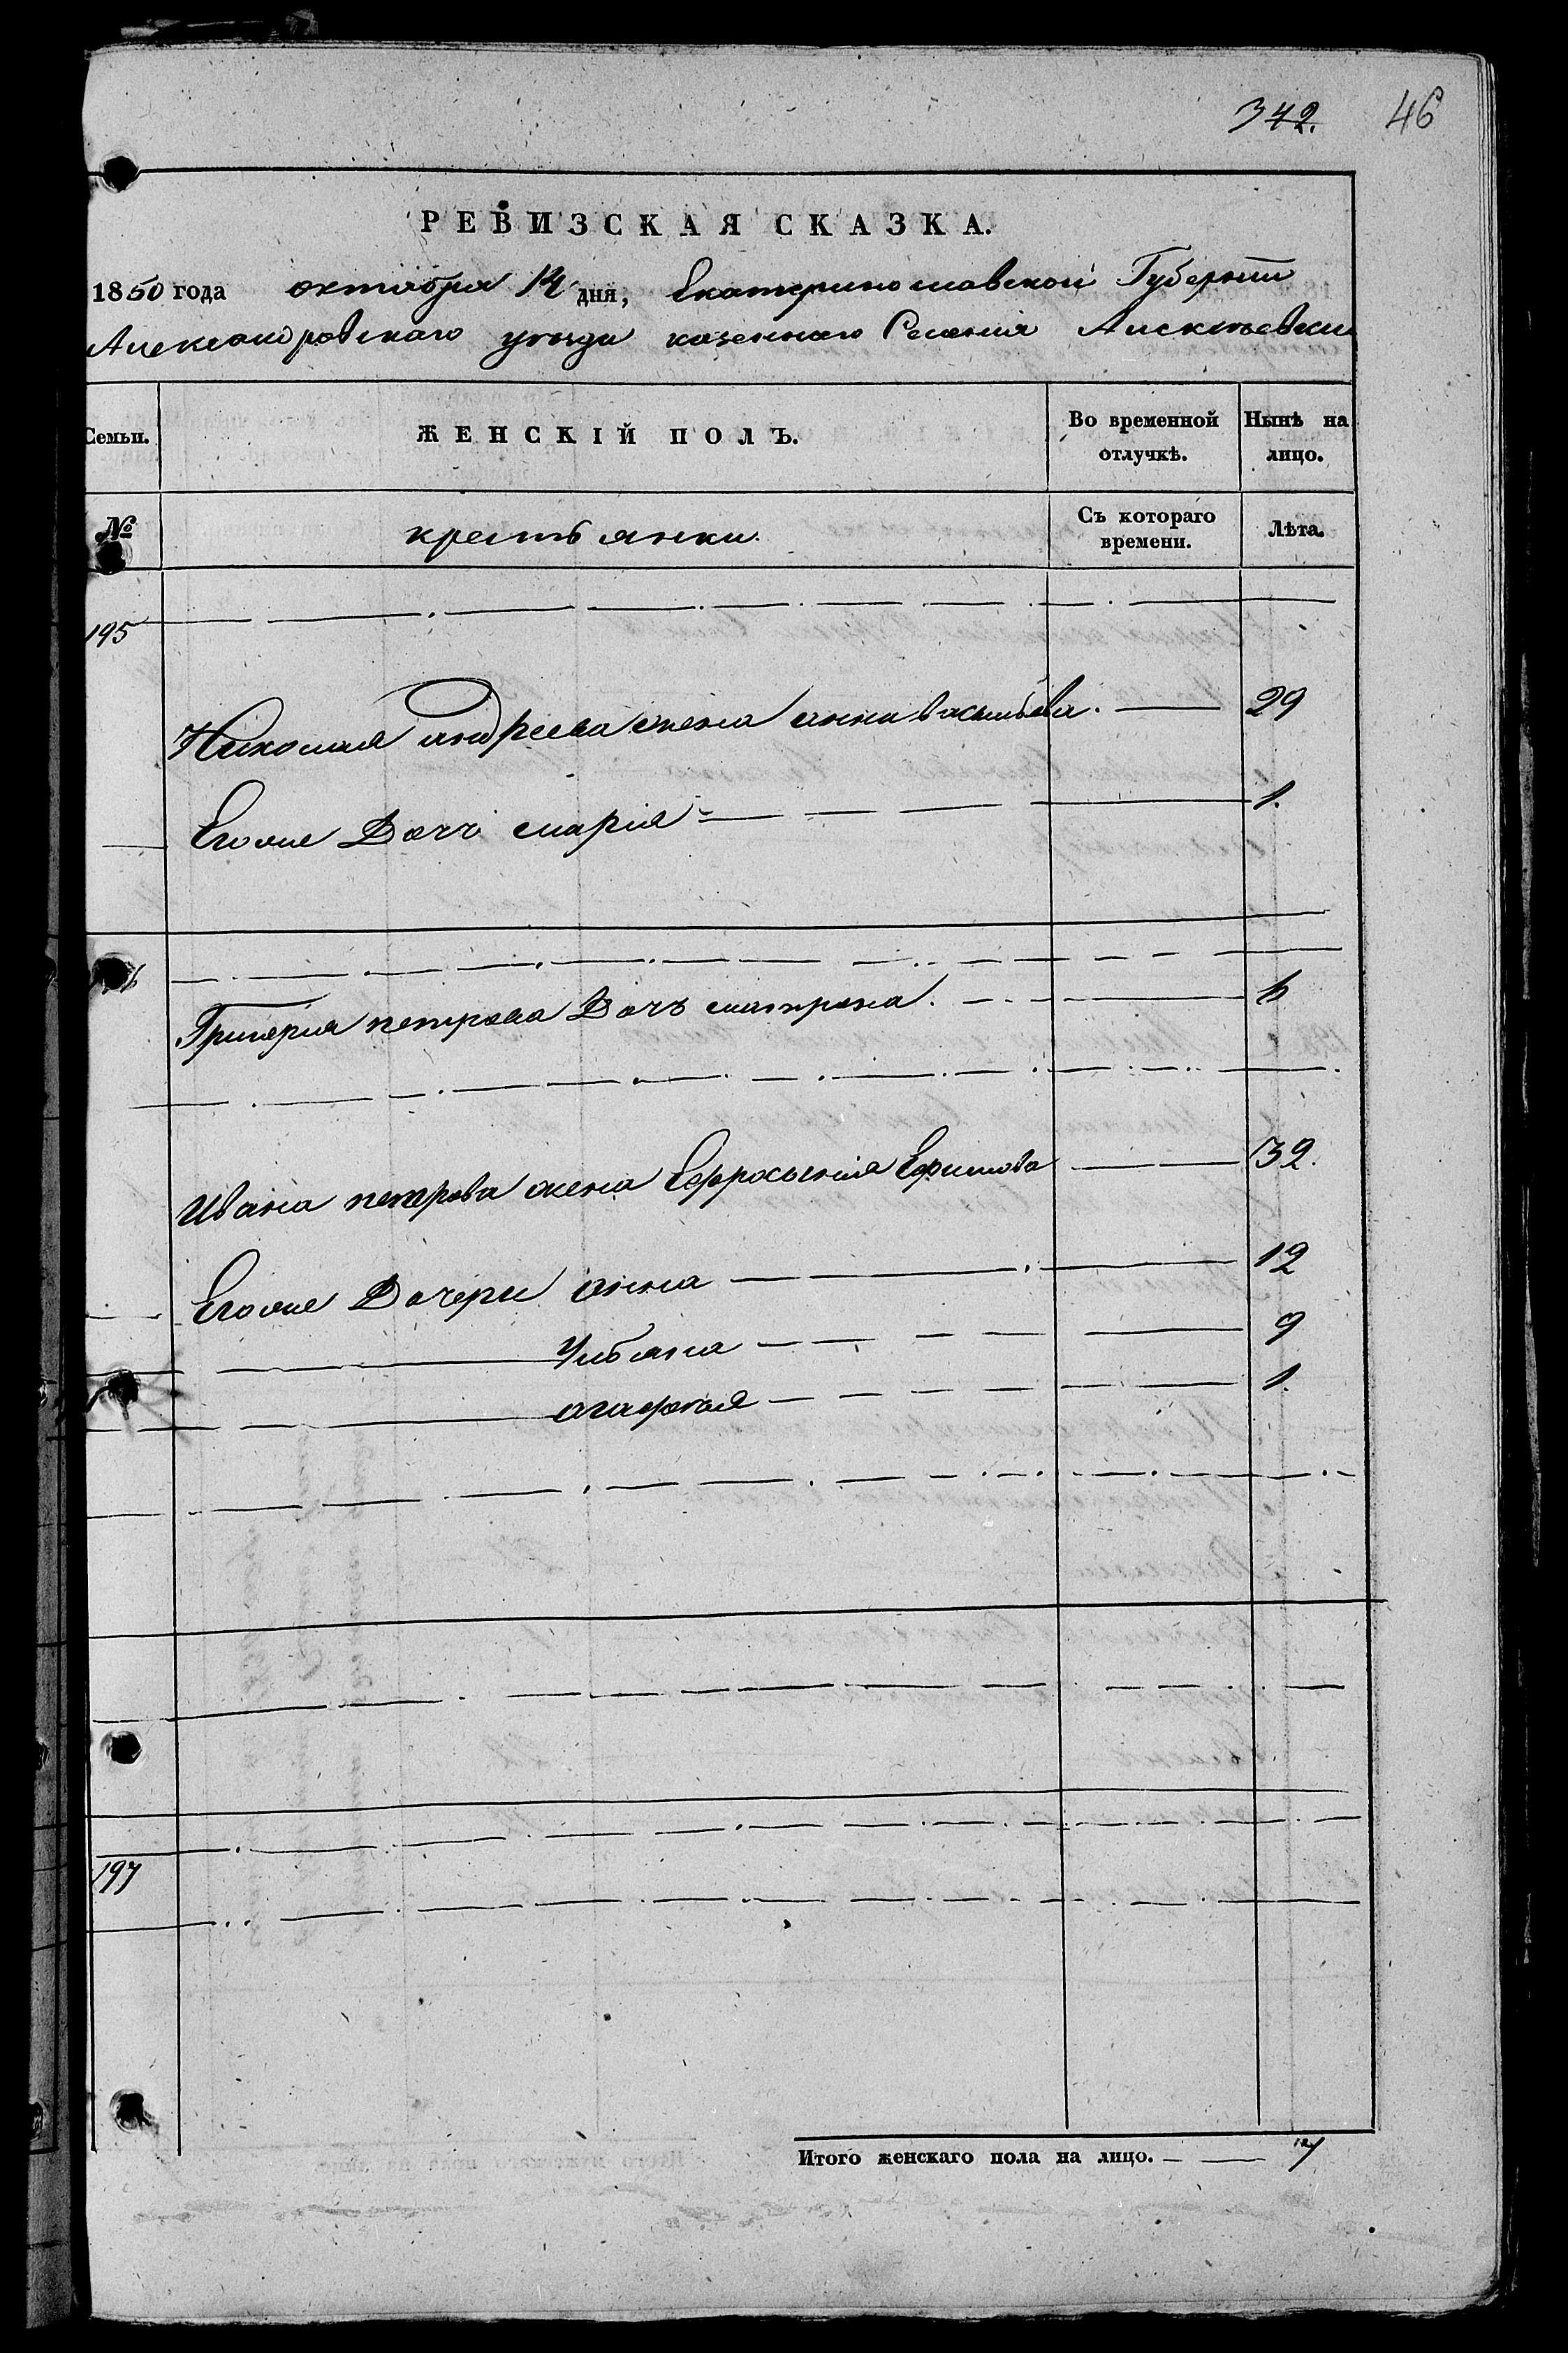 342. 46
РЕВИЗСКАЯ СКАЗКА.
1850 года октября 14 дня, Екатеринославской Губернiи
Александровскаго уезда казеннаго Селенiя Алексеевки
Семьи. ЖЕНСКІЙ ПОЛЪ. Во временной отлучкѣ. Нынѣ на лицо.
№ крестьянки. Съ котораго времени. Лѣта.
195
Николая андреева жена анна васильева. 29
Егоже Дочь марiя 1.
Григорiя петрова Дочь матрона. 6
Ивана петрова жена Ефросинiя Ефимова 32.
Егоже Дочери анна 12
Улiяна 9
агафiя 1.
197
Итого женскаго пола на лицо. 7